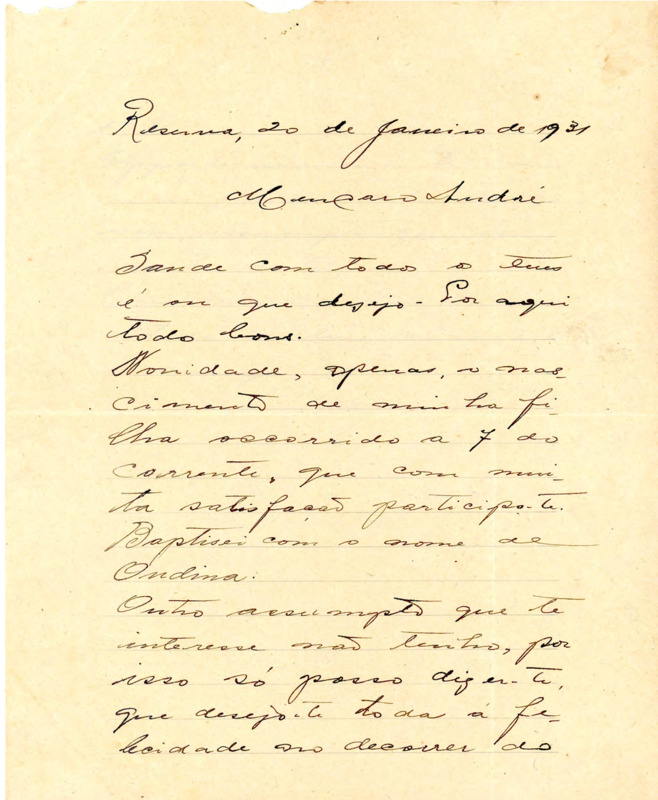 Reserva, 20 de Janeiro de 1931
Meu caro André
Saude com todos os teus
é ou que desejo - Por aqui
todo bons.
Novidade, apenas, o nas-
cimento de minha fi-
lha occorrido a 7 do
corrente, que com mui-
ta satisfação participo-te.
Baptisei com o nome de
Ondina.
Outro assumpto que te
interesse não tenho, por
isso só posso dizer-te,
que desejo-te toda a fe-
licidade no decorrer do